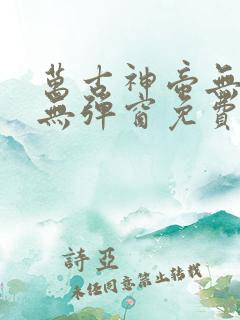 萬古神帝無
無彈窗免費
詩亞
未經同意禁止转载